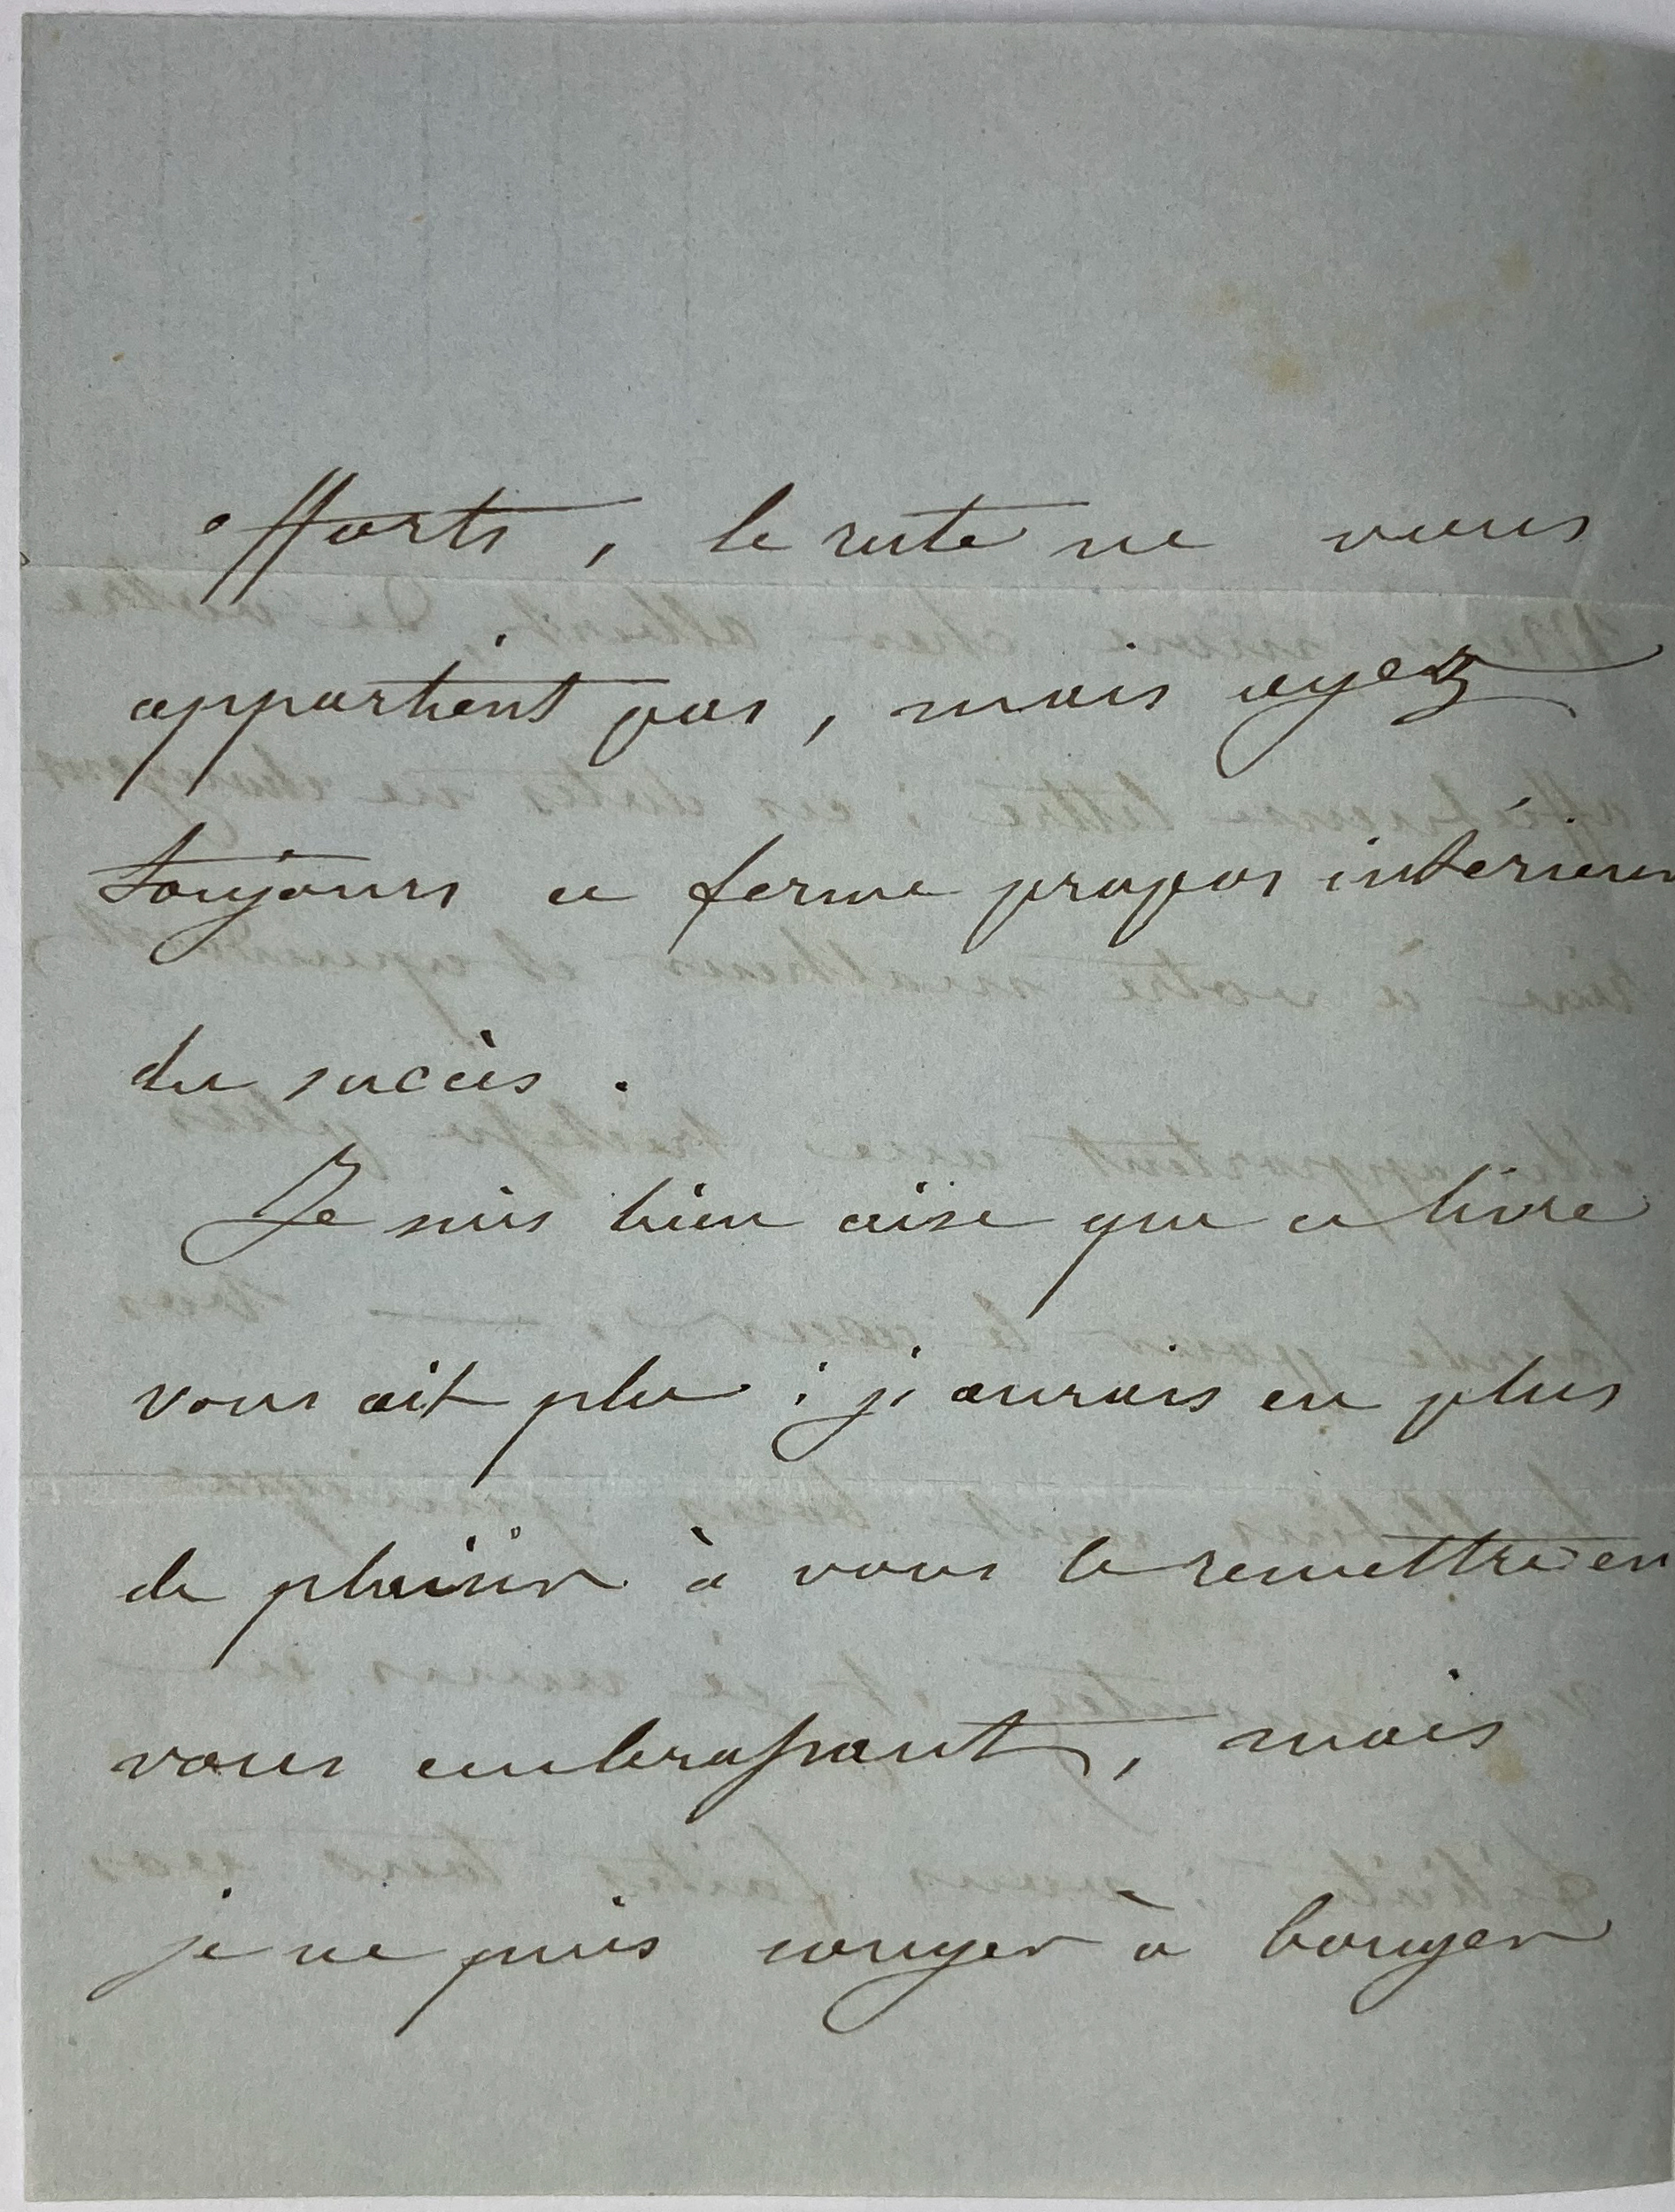 efforts, le reste ne vous
appartient pas, mais ayez
toujours ce ferme propos intérieur
du succès.
Je suis bien aise que ce livre
vous ait plu : j'aurais eu plus
de plaisir à vous le remettre en
vous embrassant, mais
je ne puis songer à bouger